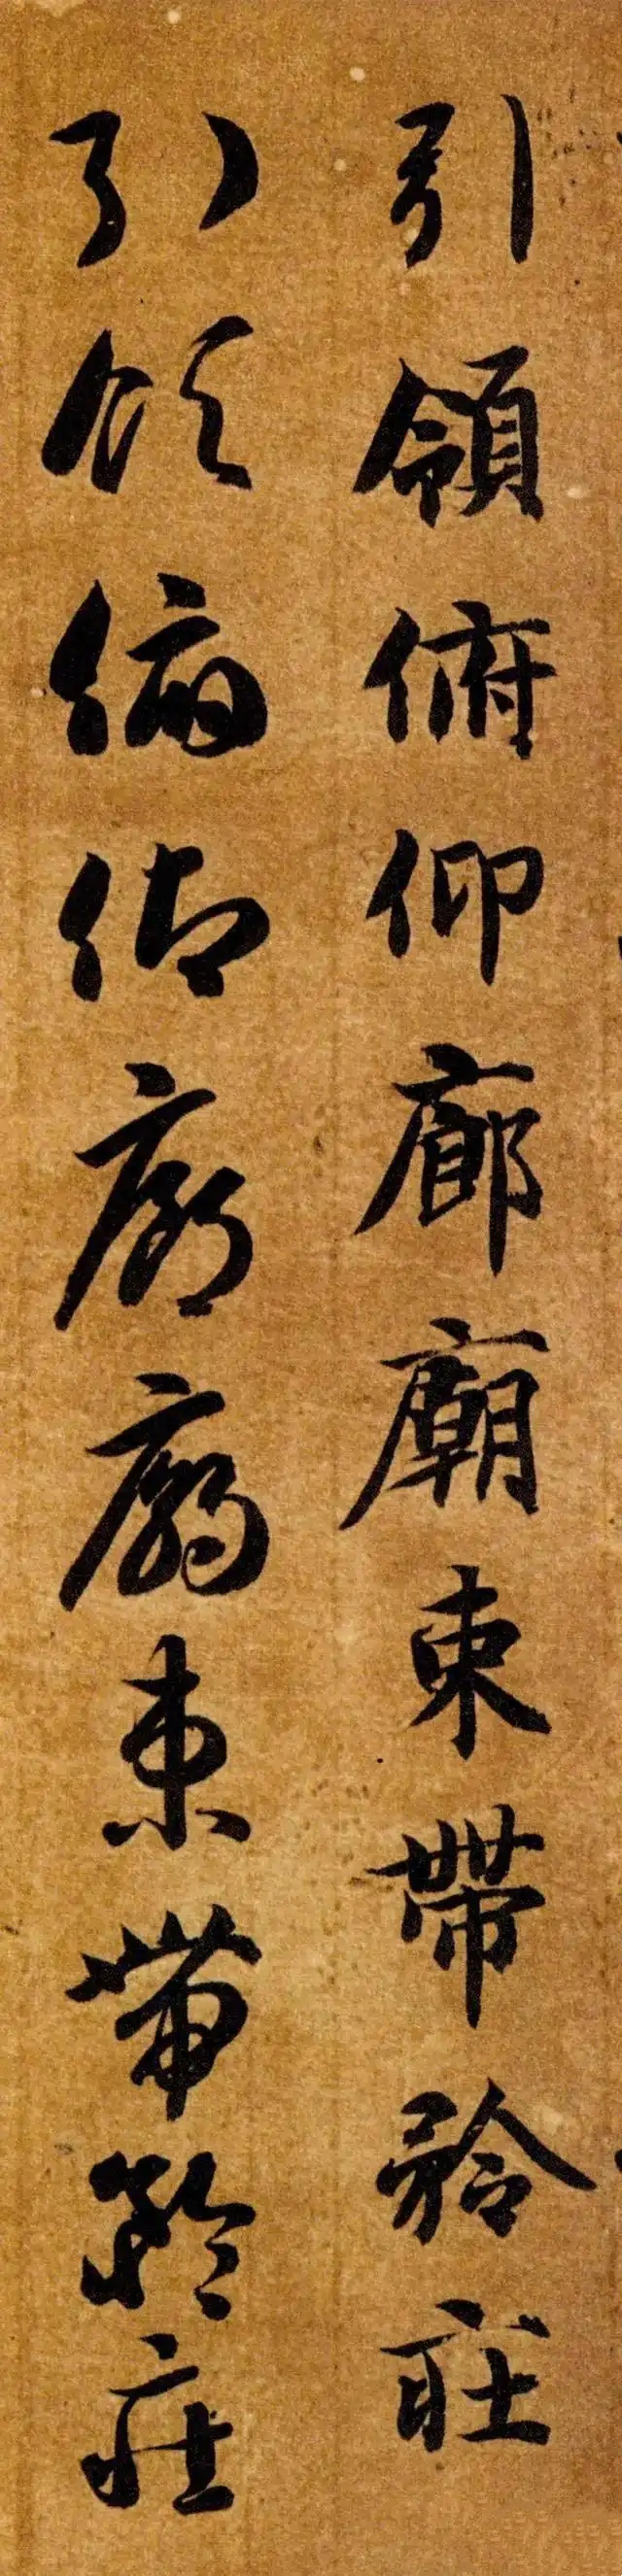 引領俯仰廊廟束帶矜庄
引領俯仰廊廟束帶矜庄